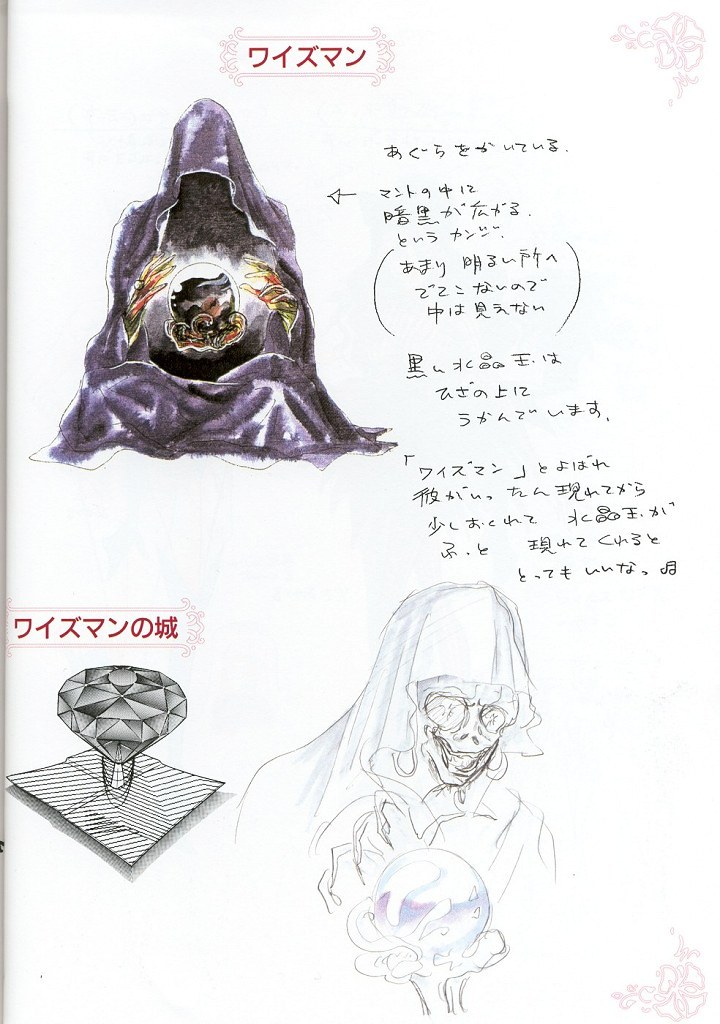 ワイズマン
あぐらをかいている.
マントの中に
暗黒が広がる.
というカンジ.
あまり 明るい所へ
でてこないので
中は見えない
黒い水晶玉は
ひざの上に
うかんでいます.
「ワイズマン」とよばれ
彼がいったん現れてから
少しおくれて 水晶玉が
ふっと 現れてくれると
とってもいいなっ
ワイズマンの城